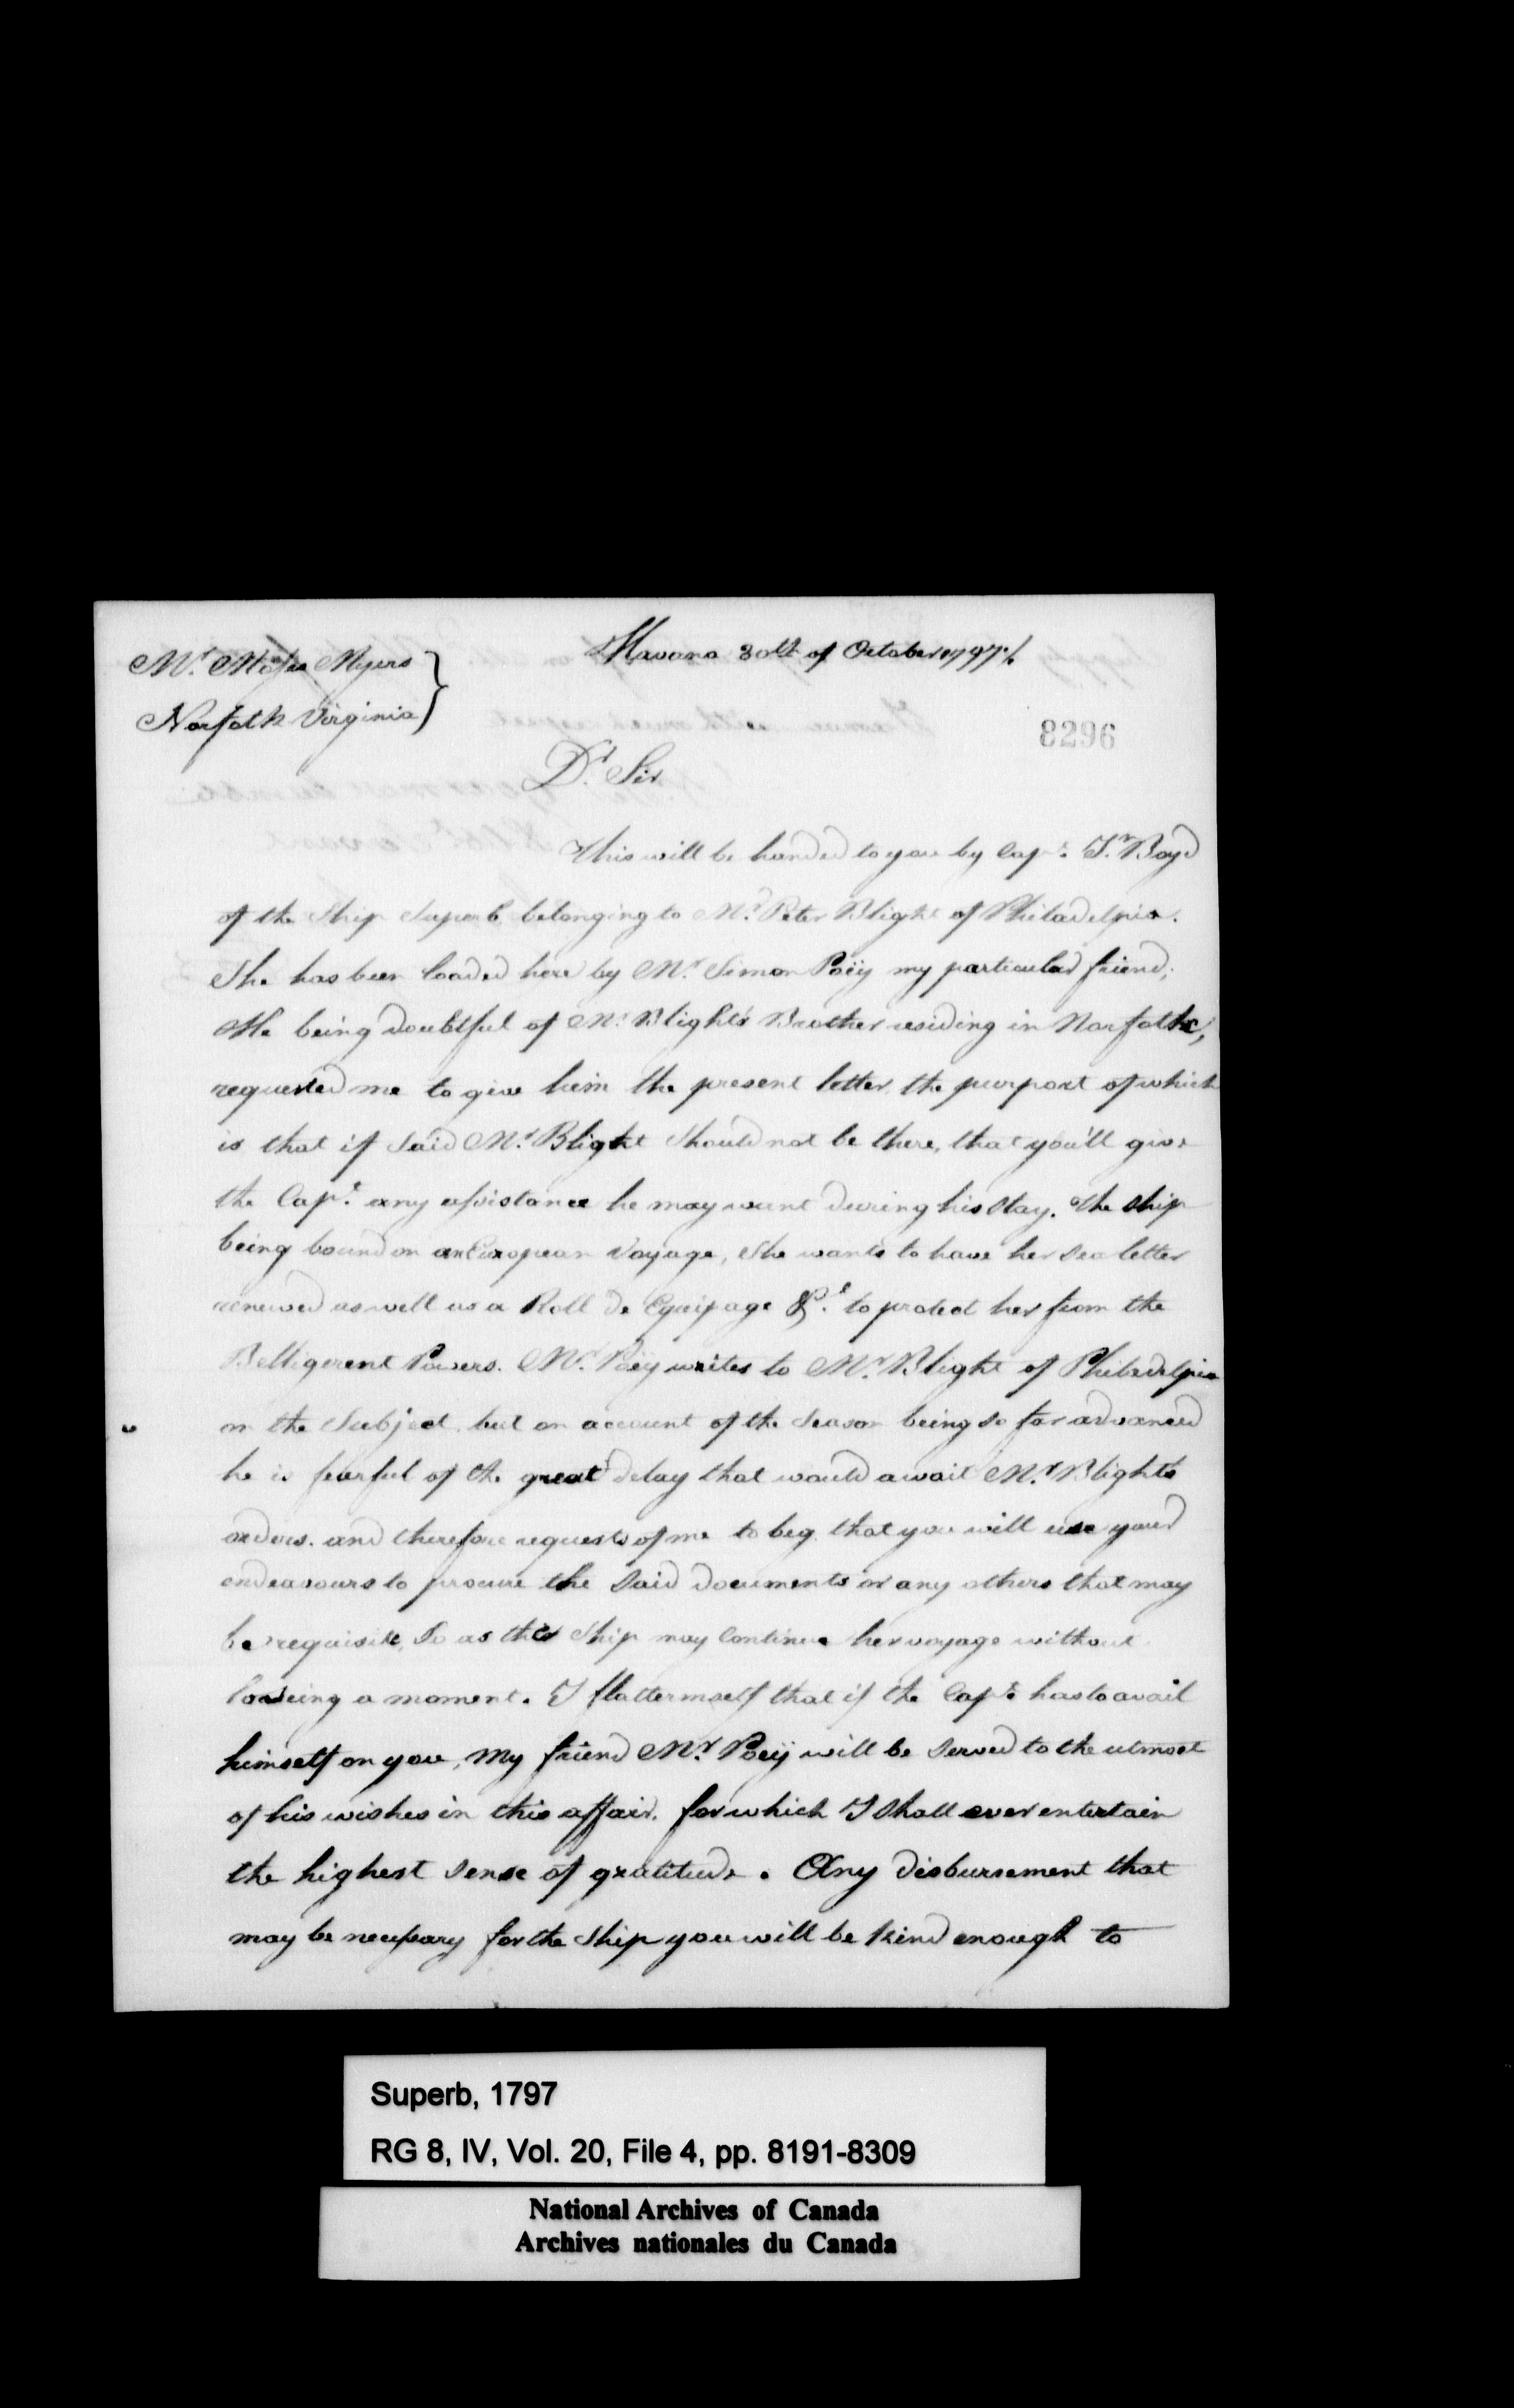 Mr. Moses Myers
Norfolk Virginia
Havana 30th of October 1797
8296
Dr. Sir
This will be handed to you by Capt. Jn. Boyd
of the Ship Superb belonging to Mr. Peter Blight of Philadelpia.
She has been loaded here by Mr. Simon Poëy my particular friend;
He being doubtful of Mr. Blight's Brother residing in Norfolk,
requested me to give him the present letter, the purport of which
is that if said Mr. Blight should not be there, that you'll give
the Capt. any assistance he may want during his stay. The ship
being bound on an European Voyage, She wants to have her Sea letter
renewed as well as a Roll de Equipage &c. to protect her from the
Belligerent Powers. Mr. Poëy writes to Mr. Blight of Philadelpia
on the Subject, but on account of the Season being so far advanced
he is fearful of the great delay that would await Mr. Blights
orders. and therefore requests of me to beg that you will use your
endeavours to procure the said documents or any others that may
be requisite, So as the Ship may Continue her voyage without
looseing a moment. I flatter mself that if the Capt. has to avail
himself on you, My friend Mr. Poëy will be served to the utmost
of his wishes in this affair. for which I shall ever entertain
the highest sense of gratitude. Any disbursement that
may be necessary for the Ship you will be kind enough to
Superb, 1797
RG 8, IV, Vol. 20, File 4, pp. 8191-8309
National Archives of Canada
Archives nationales du Canada